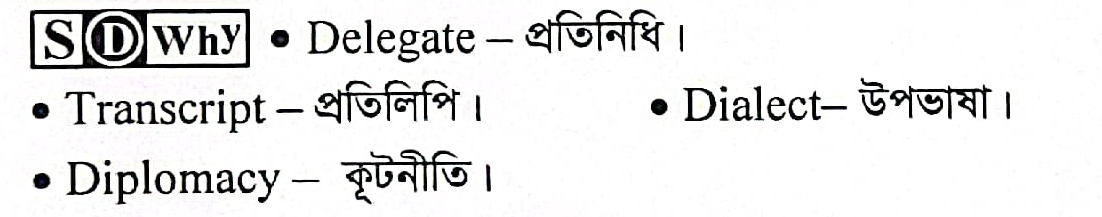 S D Why • Delegate – প্রতিনিধি।
• Transcript – প্রতিলিপি। • Dialect– উপভাষা।
• Diplomacy – কূটনীতি।